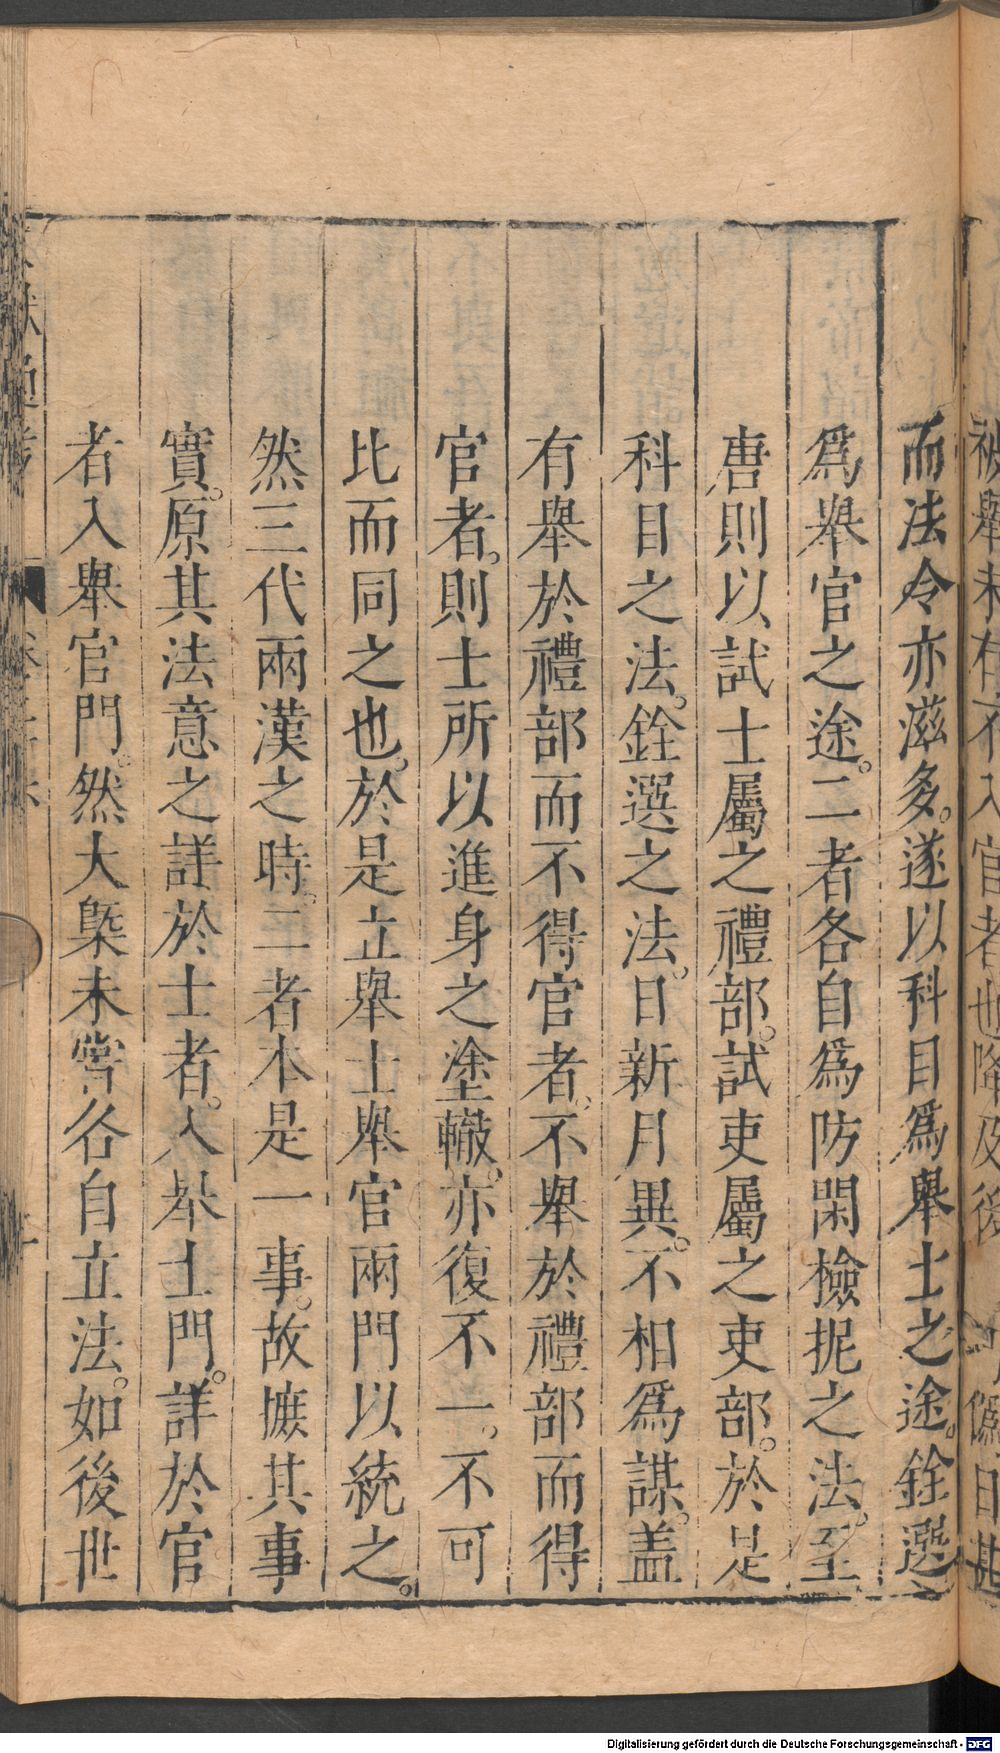 而法令亦滋多。遂以科目爲舉士之途。銓選
爲舉官之途。二者各自爲防閑檢抳之法。至
唐則以試士屬之禮部。試吏屬之吏部。於是
科目之法。銓選之法。日新月異。不相爲謀。盖
有舉於禮部而不得官者。不舉於禮部而得
官者。則士所以進身之塗轍。亦復不一。不可
比而同之也。於是立舉士舉官兩門以統之。
然三代兩漢之時。二者本是一事。故摭其事
實。原其法意之詳於士者。入㪯士門。詳於官
者入舉官門。然大槩未嘗各自立法。如後世
Digitalisierung gefördert durch die Deutsche Forschungsgemeinschaft - DFG